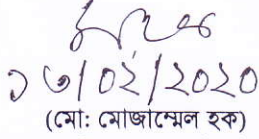 ১৬/০২/২০২০
(মো: মোজাম্মেল হক)